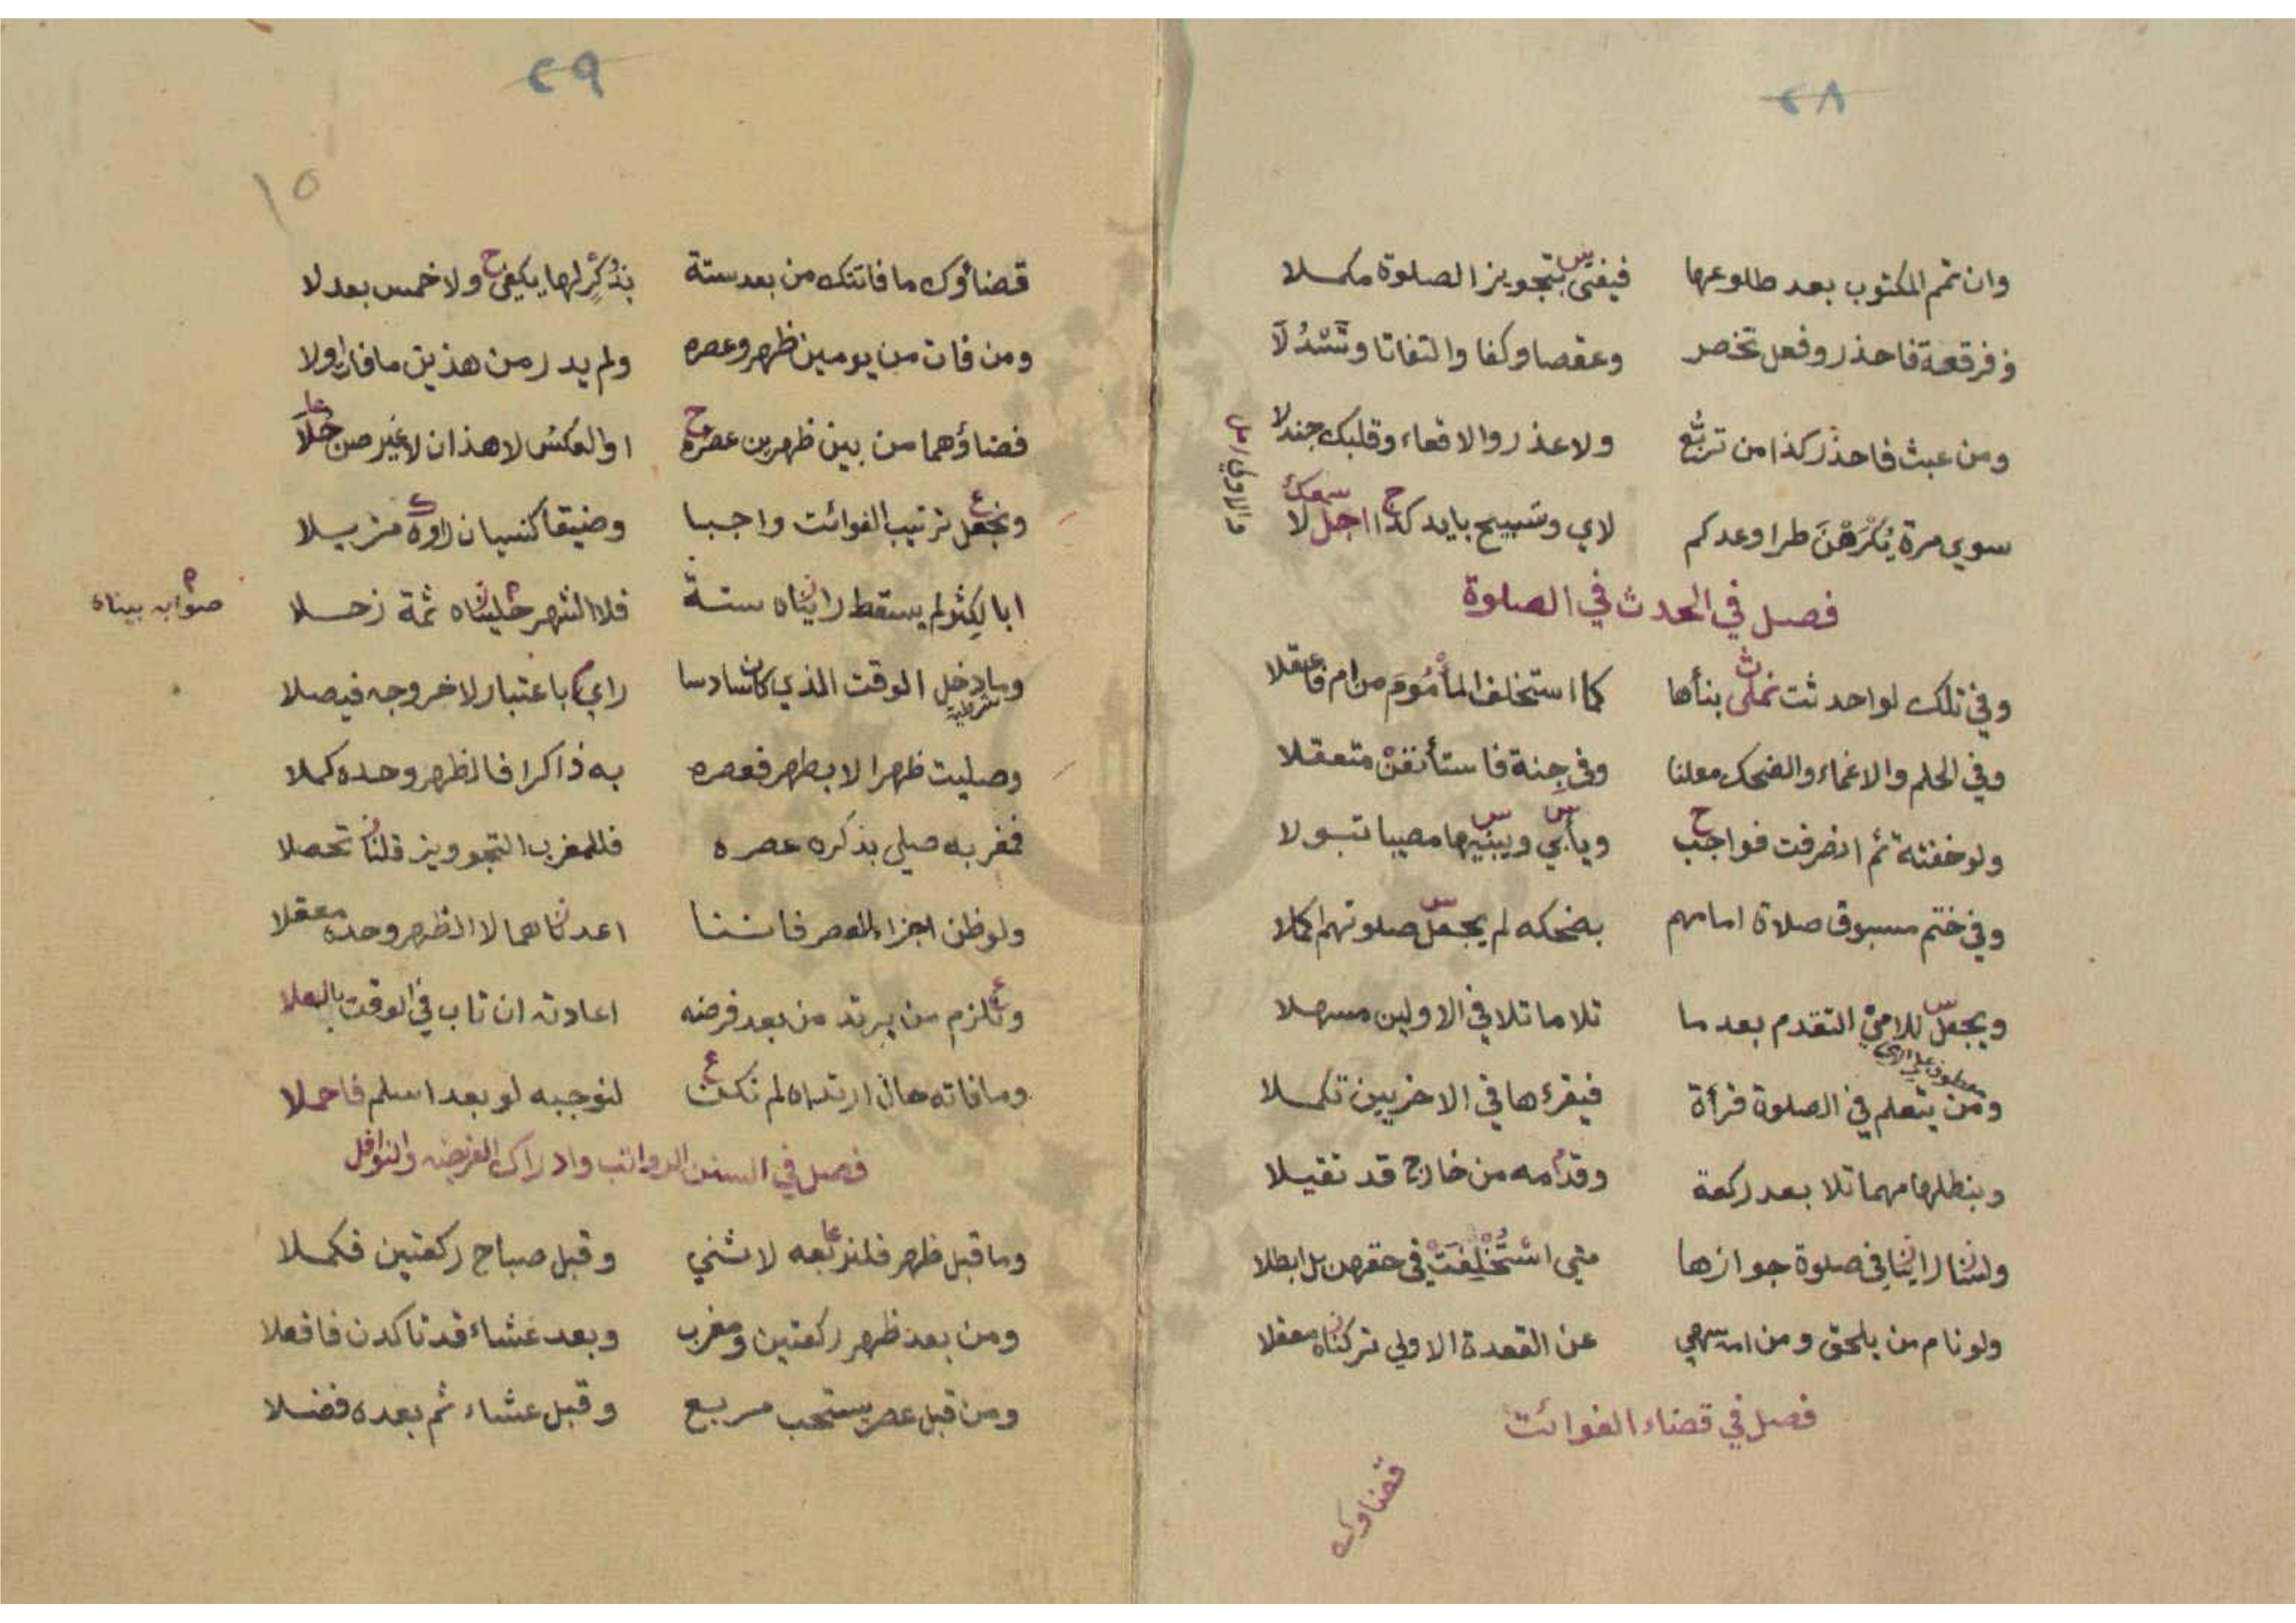 ٢٨
وان تتم المكتوب بعد طلوعها فيفتى بتجويز الصلوة مكملا
وفرقعة فاحذر وفعل تخصر وعقصا وكفا والتفاتا وتسدلا
ومن عبث فاحذر كذا من تربع ولا عذر والاقعاء وقلبك جندلا
سوي مرة يكرهن طرا وعدكم لاي وتسبيح بايد كذا اجل لا
فصل في الحدث في الصلوة
وفي تلك لو احدثت نملى بناها كما استخلف المأموم من ام
وفي الحلم والاغماء والضحك معلنا وفي جنة فاستأنفن متعقلا
ولو خفته ثم انصرفت فواجب ويأبي ويبنيها مصيبا تبولا
وفي ختم مسبوق صلاة امامهم بضحكه لم يجعل صلوتهم كملا
ويجعل للامي التقدم بعد ما تلا ما تلا في الاولين مسهلا
معطوف على الامي
ومن يتعلم في الصلوة قرأة فيقرءها في الاخريين تكملا
وبنطلها مهما تلا بعد ركعة وقدامه من خارج قد تقيلا
ولسنا راينا في صلوة جوازها متي استخلفت في حقهن بل ابطلا
ولو نام من يلحق ومن امه سهي عن القعدة الاولي تركناه معقلا
فصل في قضاء الفوائت
قضاوك
٢٩
١٥
قضاؤك ما فاتتك من بعد ستة بذكر لها يكفى ولا خمس بعد لا
ومن فات من يومين ظهر وعصره ولم يدر من هذين ما فات اولا
قضاؤهما من بين ظهرين عصره او العكس لا هذان لا غير صن خلا
ونجعل ترتيب الفوائت واجبا وضيقا كنسيان راوه مزيلا
ابا لكثر لم يسقط رايناه ستة فلا الشهر خليناه ثمة زحلا
صوابه بيناه
وما دخل الوقت الذي كان سادسا راي باعتبار لا خروجه فيصلا
شرطية
وصليت ظهرا لا بطهر فعصره به ذاكرا فالظهر وحده كملا
فمغربه صلى بذكره عصره فللمغرب التجوويز قلنا تحصلا
ولو ظن اجزاء للعصر فاننا اعدناهما لا الظهر وحده معقلا
وتلزم من يرتد من بعد فرضه اعادته ان تاب في الوقت بالعلا
وما فاته حال ارتداه لم نكن لنوجبه لو بعد اسلم فاحملا
فصل في السنن الرواتب وادراك الفريضه والنوافل
وما قبل ظهر فلنربعه لا نثني وقبل صباح ركعتين فكملا
ومن بعد ظهر ركعتين ومغرب وبعد عشاء قد تاكدن فافعلا
ومن قبل عصر يستحب مربع وقبل عشاء ثم بعده فضلا